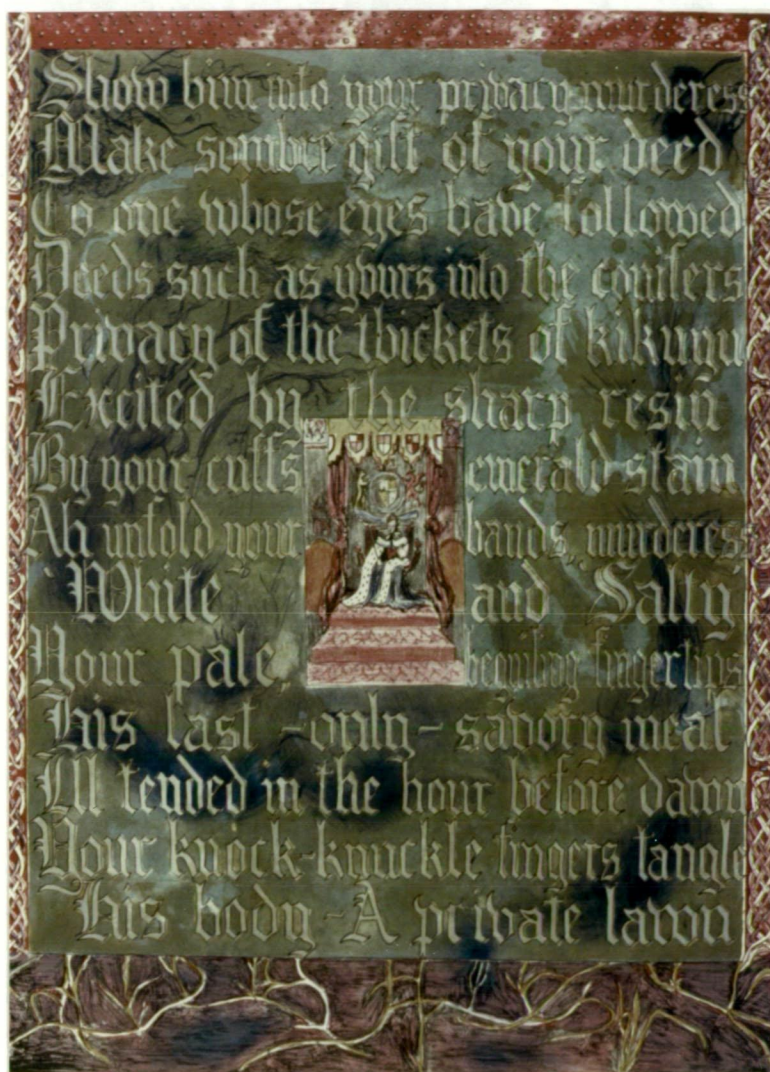 Show him into your privacy murderess
Make sombre gift of your deed
To one whose eyes have followed
Deeds such as yours into the conifers
Privacy of the thickets of kikuyu
Excited by the sharp resin
By your cuffs emerald stain
Ah unfold your hands, murderess
White and Salty
Your pale, becoming fingertips
His last - only - savory meal
Ill tended in the hour before dawn
Your knock-knuckle fingers tangle
His body - A private lawn